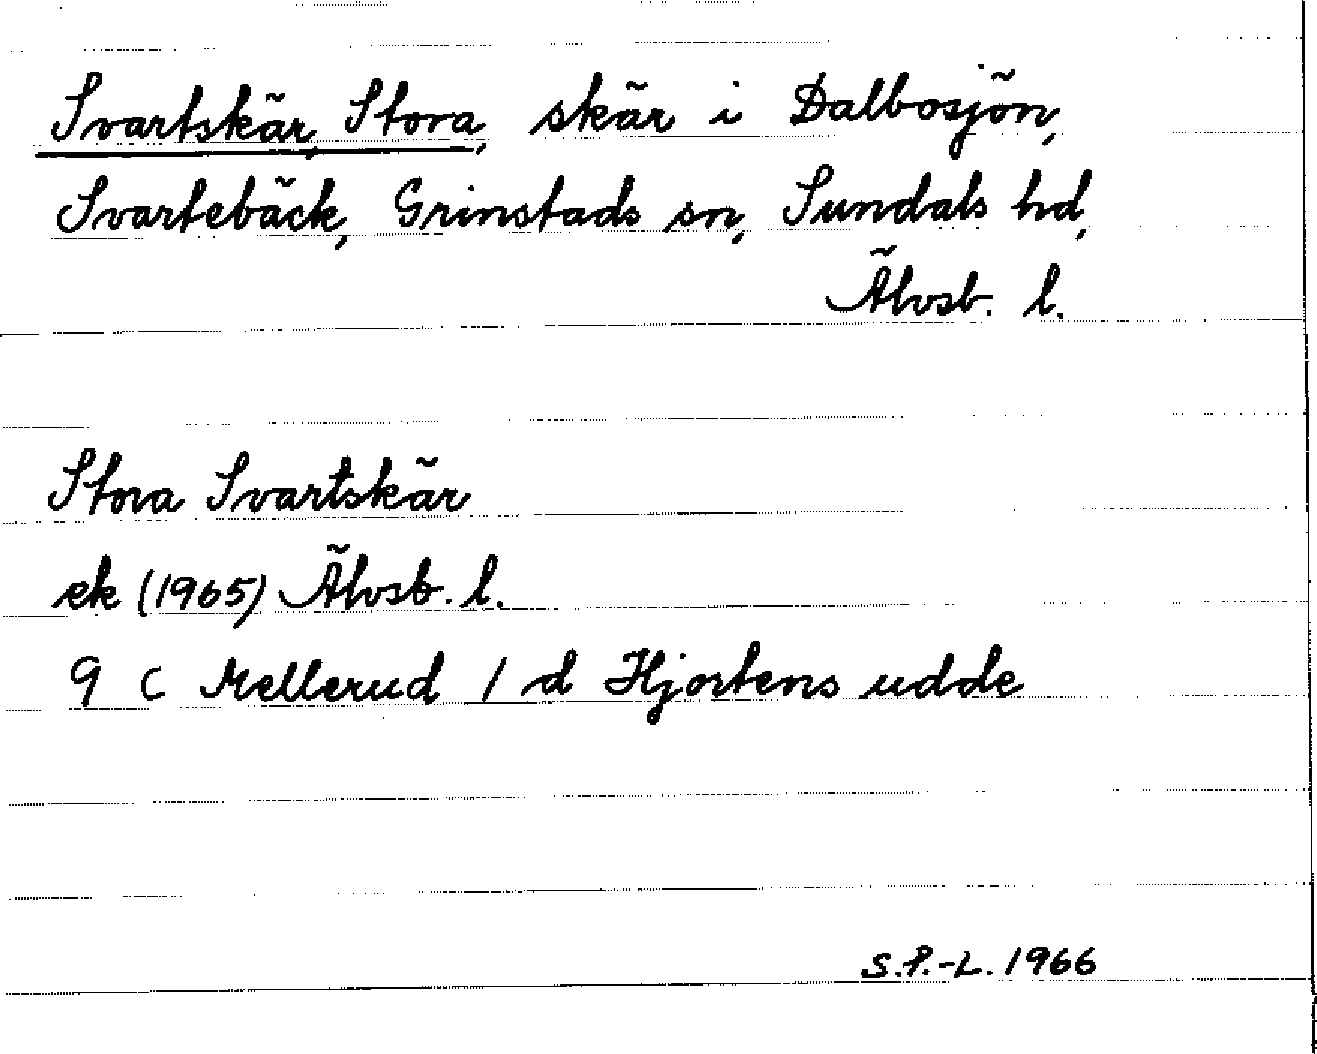 Svartskär, Stora, skär i Dalbosjön,
Svartebäck, Grinstads sn, Sundals hd,
Älvsb. l.
Stora Svartskär
ek (1965) Älvsb. l.
9 C Mellerud 1 d Hjortens udde
S.P.-L. 1966